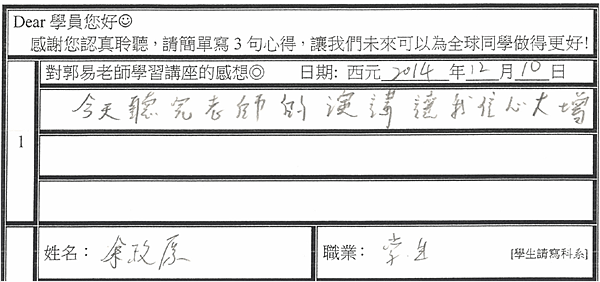 Dear 學員您好☺
感謝您認真聆聽，請簡單寫 3 句心得，讓我們未來可以為全球同學做得更好!
對郭易老師學習講座的感想◎ 日期: 西元 2014 年 12 月 10 日
1
今天聽完老師的演講讓我信心大增
姓名： 余政 職業： 學生 [學生請寫科系]